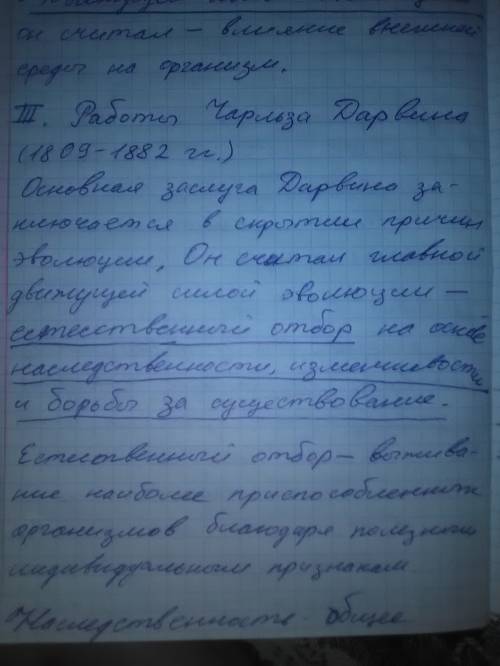 он считал – влияние внешней
среды на организм.
III. Работы Чарльза Дарвина
(1809-1882 гг.)
Основная заслуга Дарвина за-
ключается в скрытии причин
эволюции, Он считал главной
движущей силой эволюции –
естественный отбор на основе
наследственности, изменчивости
и борьбы за существование.
Естественный отбор – выжива-
ние наиболее приспособленных
организмов благодаря полезным
индивидуальным признакам
Наследственность - общее